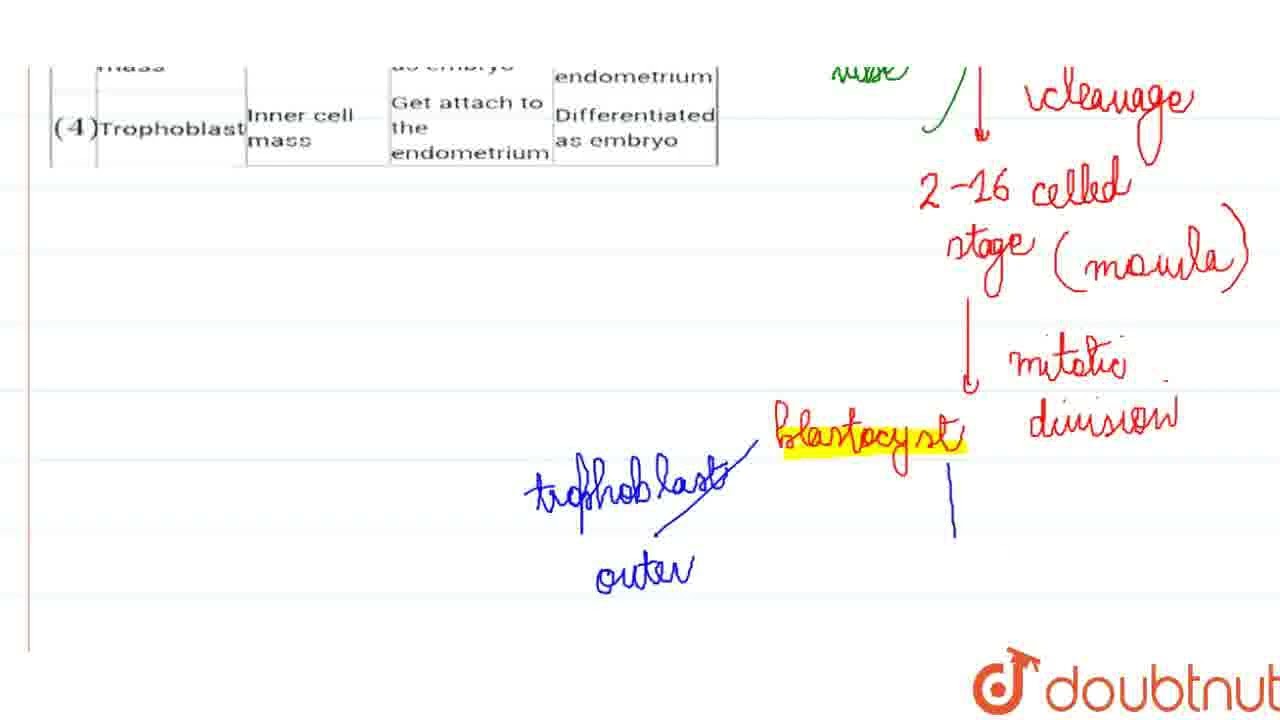 endometrium
(4) Trophoblast Inner cell mass Get attach to the endometrium Differentiated as embryo
cleavage
2-16 celled
stage (morula)
mitotic
division
blastocyst
trophoblast
outer
doubtnut